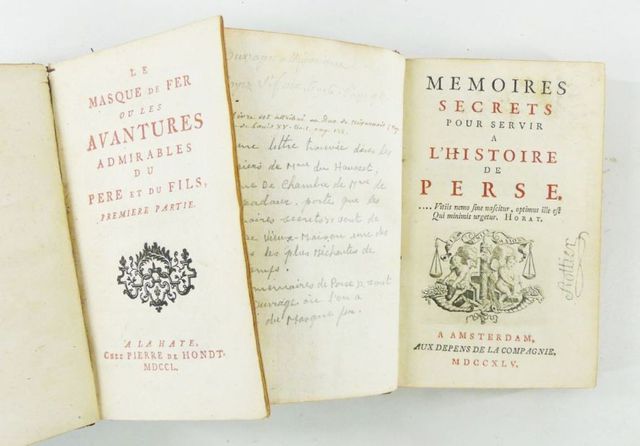 LE
MASQUE DE FER
OU LES
AVANTURES
ADMIRABLES
DU
PERE ET DU FILS,
PREMIERE PARTIE.
A LA HAYE,
CHEZ PIERRE DE HONDT.
MDCCL.
une lettre trouvée dans les
Mme du Hausset,
De Chambre de Mme de
porte que les
secrets sont de
Vieux-Maison une des
les plus méchantes de
memoires de Perse sont
ouvrage où l'on a
du Masque fer.
MEMOIRES
SECRETS
POUR SERVIR
A
L'HISTOIRE
DE
PERSE.
.... Vitiis nemo sine nascitur, optimus ille est
Qui minimis urgetur. HORAT.
A AMSTERDAM,
AUX DEPENS DE LA COMPAGNIE,
MDCCXLV.